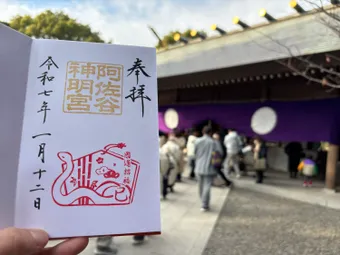 奉拝
阿佐谷
神明宮
令和七年一月十二日